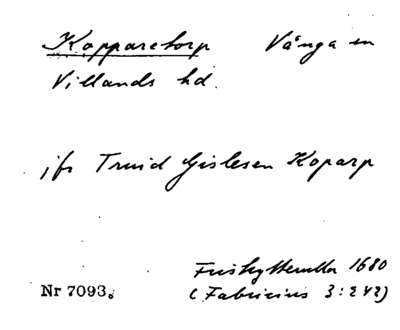 Kopparetorp Vånga sn
Villands hd.
jfr Truid Gislesen Koparp
Friskytterulla 1680
Nr 7093. (Fabricius 3:242)